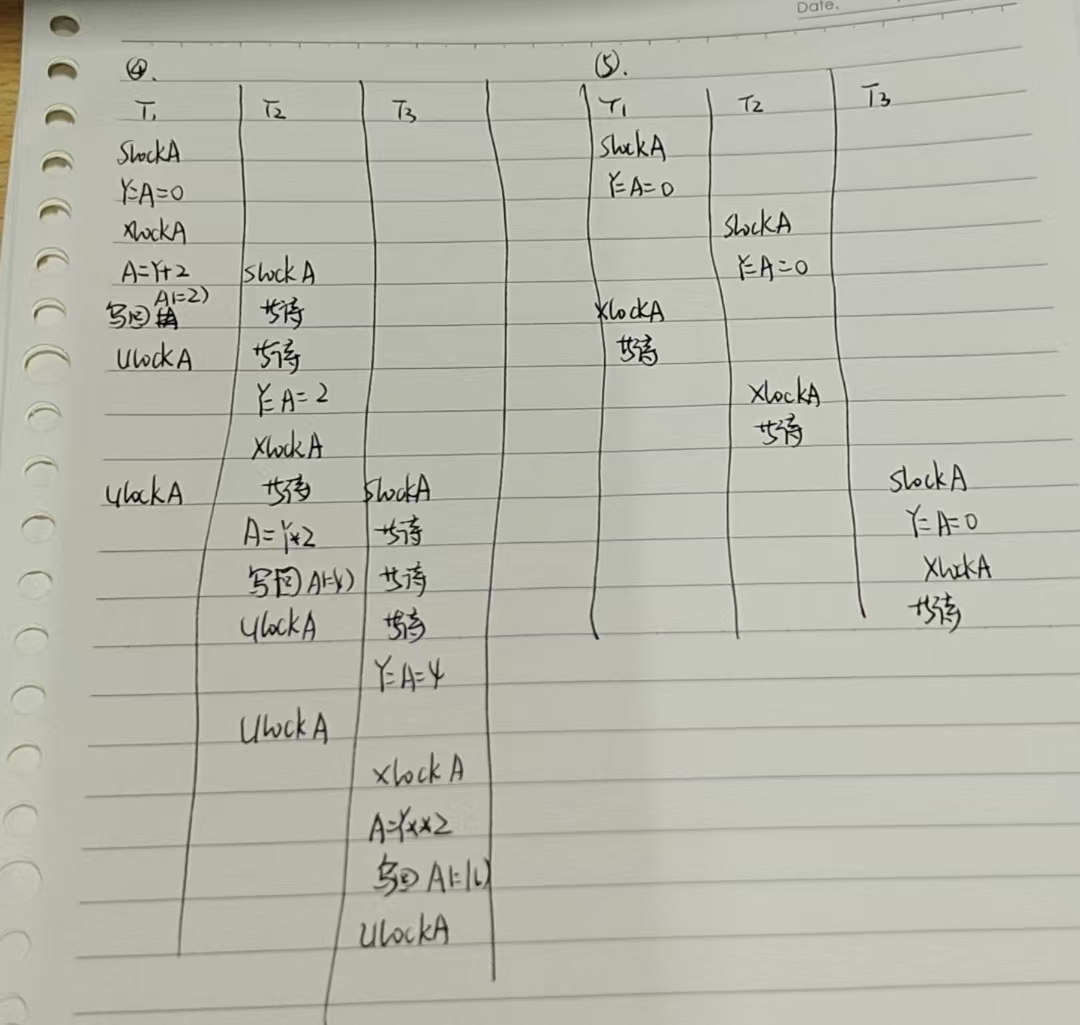 Date.
④.
T₁ T₂ T₃
SlockA
Y=A=0
XlockA
A=Y+2 slockA
写回 A(=2) 等待
UlockA 等待
Y=A=2
XlockA
UlockA 等待 SlockA
A=Y*2 等待
写回A(=4) 等待
UlockA 等待
Y=A=4
UlockA
XlockA
A=Y**2
写回A(=16)
UlockA
⑤.
T₁ T₂ T₃
SlockA
Y=A=0
SlockA
Y=A=0
XlockA
等待
XlockA
等待
SlockA
Y=A=0
XlockA
等待